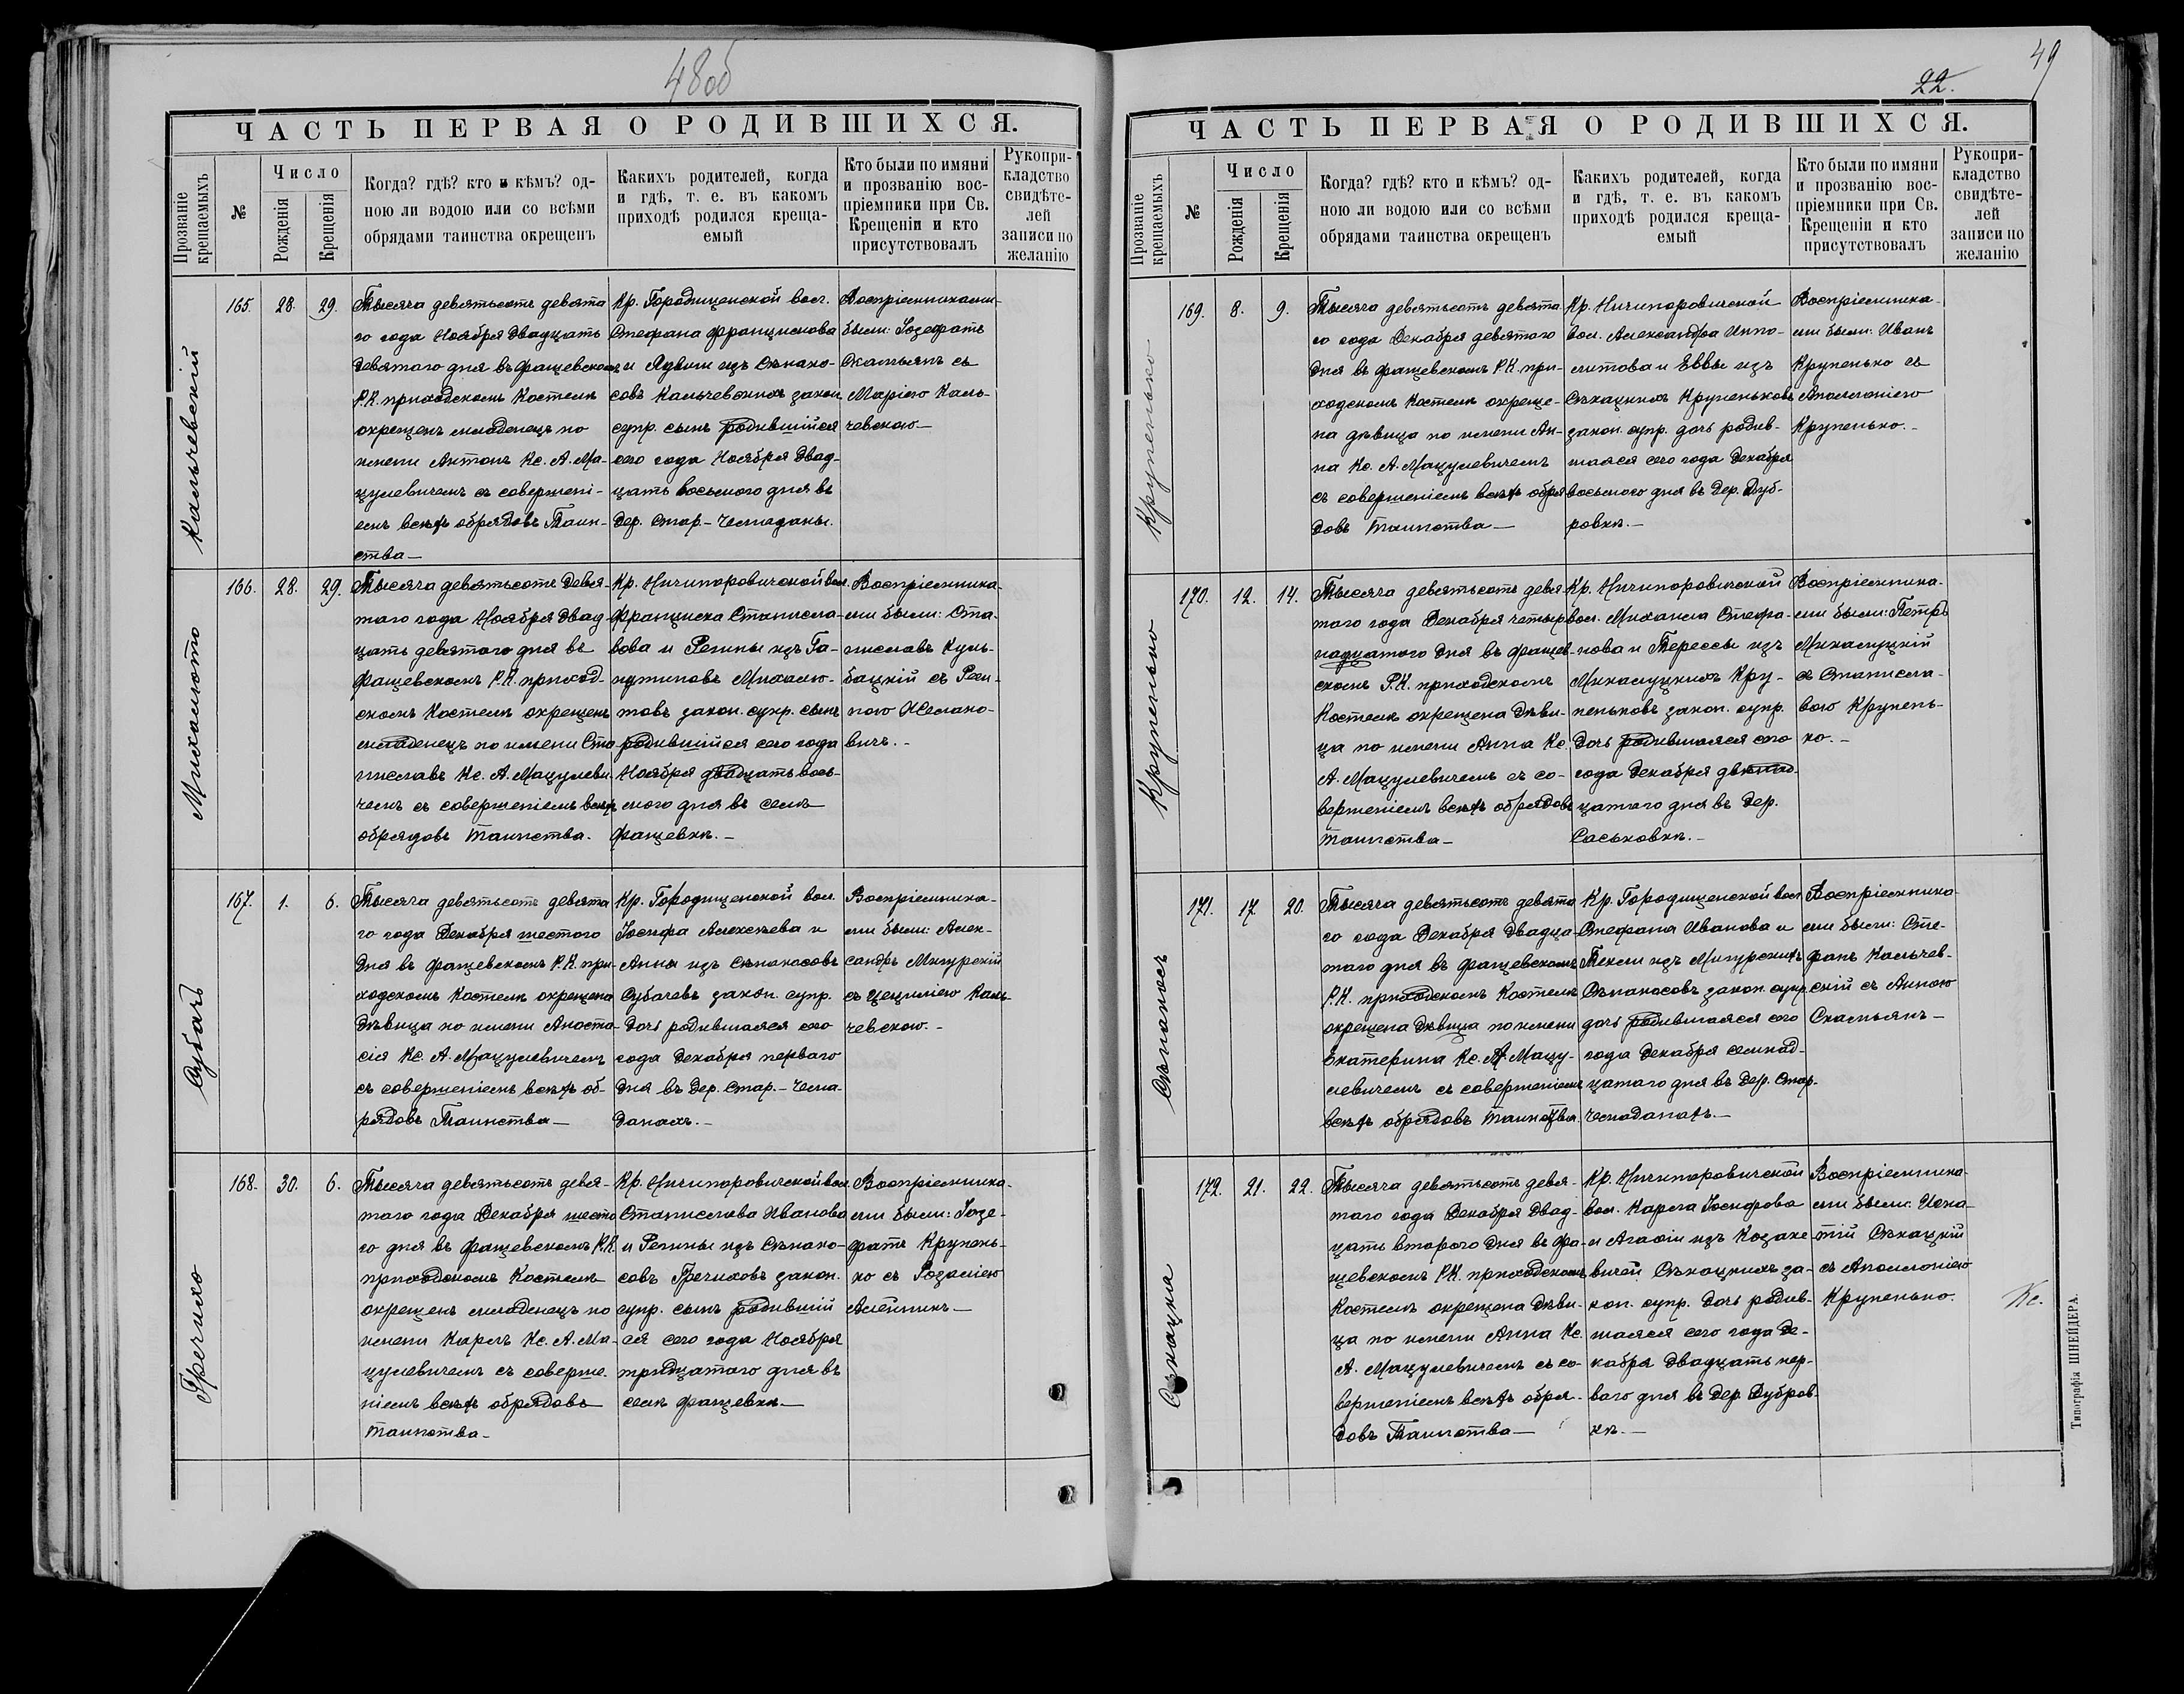 48об
ЧАСТЬ ПЕРВАЯ О РОДИВШИХСЯ.
Прозваніе крещаемыхъ
№
Число
Рожденія
Крещенія
Когда? гдѣ? кто и кѣмъ? од-
ною ли водою или со всѣми
обрядами таинства окрещенъ
Какихъ родителей, когда
и гдѣ, т. е. въ какомъ
приходѣ родился креща-
емый
Кто были по имяни
и прозванію вос-
пріемники при Св.
Крещеніи и кто
присутствовалъ
Рукопри-
кладство
свидѣте-
лей
записи по
желанію
Кальчевскій
165.
28.
29.
Тысяча девятьсотъ девята
го года Ноября двадцать
девятаго дня въ Фащевскомъ
Р.К. приходскомъ Костелѣ
окрещенъ младенецъ по
имени Антонъ Кс. А. Ма-
цулевичемъ съ совершені-
емъ всѣхъ обрядовъ Таин-
ства—
Кр. Городищенской вол.
Стефана Францискова
и Ядвиги изъ Сѣнако-
совъ Кальчевскихъ закон.
супр. сынъ родившійся
сего года Ноября двад-
цать восьмого дня въ
дер. Стар.-Чемоданы.
Воспріемниками
были: Іозефатъ
Скамьянъ съ
Маріею Каль-
чевскою—
Михалюто
166.
28.
29.
Тысяча девятьсотъ девя-
таго года Ноября двад-
цать девятаго дня въ
Фащевскомъ Р.К. приход-
скомъ Костелѣ окрещенъ
младенецъ по имени Ста
ниславъ Кс. А. Мацулеви
чемъ съ совершеніемъ всѣхъ
обрядовъ Таинства.
Кр. Ничипоровичской вол.
Франциска Станисла-
вова и Регины изъ Га-
путиновъ Михалю-
товъ закон. супр. сынъ
родившійся сего года
Ноября двадцать вось-
мого дня въ селѣ
Фащевкѣ.—
Воспріемника-
ми были: Ста-
ниславъ Куль-
бацкій съ Реги-
ною Жемано-
вичъ.—
Субачъ
167.
1.
6.
Тысяча девятьсотъ девята
го года Декабря шестого
дня въ Фащевскомъ Р.К. при-
ходскомъ Костелѣ окрещена
дѣвица по имени Анаста-
сія Кс. А. Мацулевичемъ
съ совершеніемъ всѣхъ об-
рядовъ Таинства—
Кр. Городищенской вол.
Іосифа Алексѣева и
Анны изъ Сѣнакосовъ
Субачевъ закон. супр.
дочь родившаяся сего
года Декабря перваго
дня въ дер. Стар.-Чемо-
данахъ.—
Воспріемника-
ми были: Алек-
сандръ Мигурскій
съ Цециліею Каль-
чевскою.—
Гречихо
168.
30.
6.
Тысяча девятьсотъ девя-
таго года Декабря шесто
го дня въ Фащевскомъ Р.К.
приходскомъ Костелѣ
окрещенъ младенецъ по
имени Карлъ Кс. А. Ма-
цулевичемъ съ соверше-
ніемъ всѣхъ обрядовъ
Таинства—
Кр. Ничипоровичской вол.
Станислава Иванова
и Регины изъ Сѣнако-
совъ Гречиховъ закон.
супр. сынъ родившій
ся сего года Ноября
тридцатаго дня въ
селѣ Фащевкѣ—
Воспріемника-
ми были: Іозе-
фатъ Крупень-
ко съ Розаліею
Алейникъ—
49
22.
ЧАСТЬ ПЕРВАЯ О РОДИВШИХСЯ.
Прозваніе крещаемыхъ
№
Число
Рожденія
Крещенія
Когда? гдѣ? кто и кѣмъ? од-
ною ли водою или со всѣми
обрядами таинства окрещенъ
Какихъ родителей, когда
и гдѣ, т. е. въ какомъ
приходѣ родился креща-
емый
Кто были по имяни
и прозванію вос-
пріемники при Св.
Крещеніи и кто
присутствовалъ
Рукопри-
кладство
свидѣте-
лей
записи по
желанію
Крупенько
169.
8.
9.
Тысяча девятьсотъ девята
го года Декабря девятаго
дня въ Фащевскомъ Р.К. при-
ходскомъ Костелѣ окреще-
на дѣвица по имени Ан-
на Кс. А. Мацулевичемъ
съ совершеніемъ всѣхъ обря
довъ Таинства—
Кр. Ничипоровичской
вол. Александра Иппо-
литова и Еввы изъ
Сѣкацкихъ Крупеньковъ
закон. супр. дочь родив-
шаяся сего года Декабря
восьмого дня въ дер. Дуб-
ровкѣ.—
Воспріемника-
ми были: Иванъ
Крупенько съ
Аполлоніею
Крупенько.—
Крупенько
170.
12.
14.
Тысяча девятьсотъ девя
таго года Декабря четыр
надцатаго дня въ Фащев-
скомъ Р.К. приходскомъ
Костелѣ окрещена дѣви-
ца по имени Анна Кс.
А. Мацулевичемъ съ со-
вершеніемъ всѣхъ обрядовъ
Таинства—
Кр. Ничипоровичской
вол. Михаила Стефа-
нова и Терессы изъ
Микалуцкихъ Кру-
пеньковъ закон. супр.
дочь родившаяся сего
года Декабря двѣнад-
цатаго дня въ дер.
Саськовкѣ.—
Воспріемника-
ми были: Петръ
Микалуцкій
съ Станисла-
вою Крупень-
ко.—
Сѣнакосъ
171.
17.
20.
Тысяча девятьсотъ девята
го года Декабря двадца-
таго дня въ Фащевскомъ
Р.К. приходскомъ Костелѣ
окрещена дѣвица по имени
Екатерина Кс. А. Мацу-
левичемъ съ совершеніемъ
всѣхъ обрядовъ Таинства.
Кр. Городищенской вол
Стефана Иванова и
Теклы изъ Мигурскихъ
Сѣнакосовъ закон. супр.
дочь родившаяся сего
года Декабря семнад-
цатаго дня въ дер. Стар.
Чемоданахъ.—
Воспріемника-
ми были: Сте-
фанъ Кальчев-
скій съ Анною
Скамьянъ—
Сѣкацка
172.
21.
22.
Тысяча девятьсотъ девя-
таго года Декабря двад-
цать второго дня въ Фа-
щевскомъ Р.К. приходскомъ
Костелѣ окрещена дѣви-
ца по имени Анна Кс.
А. Мацулевичемъ съ со-
вершеніемъ всѣхъ обря-
довъ Таинства—
Кр. Ничипоровичской
вол. Карла Іосифова
и Агафіи изъ Козаке-
вичей Сѣкацкихъ за-
кон. супр. дочь родив-
шаяся сего года Де-
кабря двадцать пер-
ваго дня въ дер. Дубров-
кѣ.—
Воспріемника-
ми были: Игна-
тій Сѣкацкій
съ Аполлоніею
Крупенько.
Кс.
Типографія ШНЕЙДЕРА.